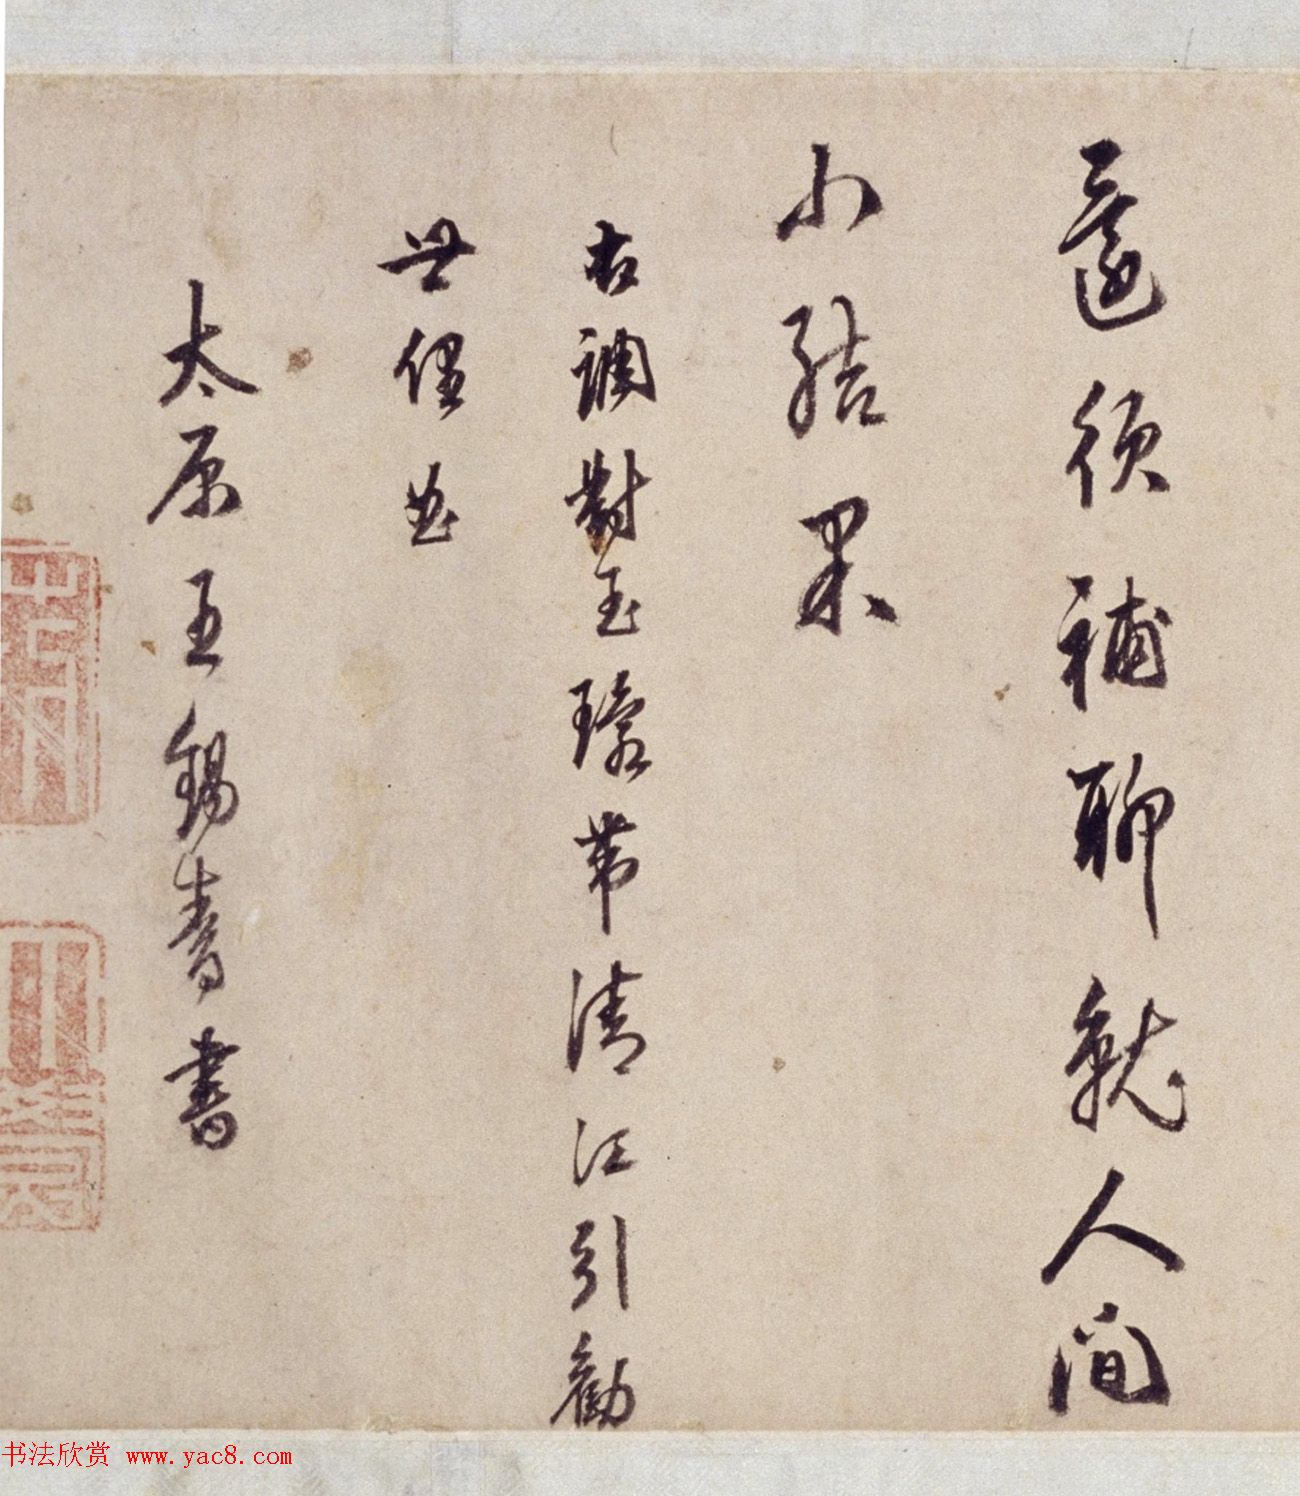 還須補聊就人間
小結果
古調對玉環帶清江引勸
世俚曲
太原王錫爵書
书法欣赏 www.yac8.com